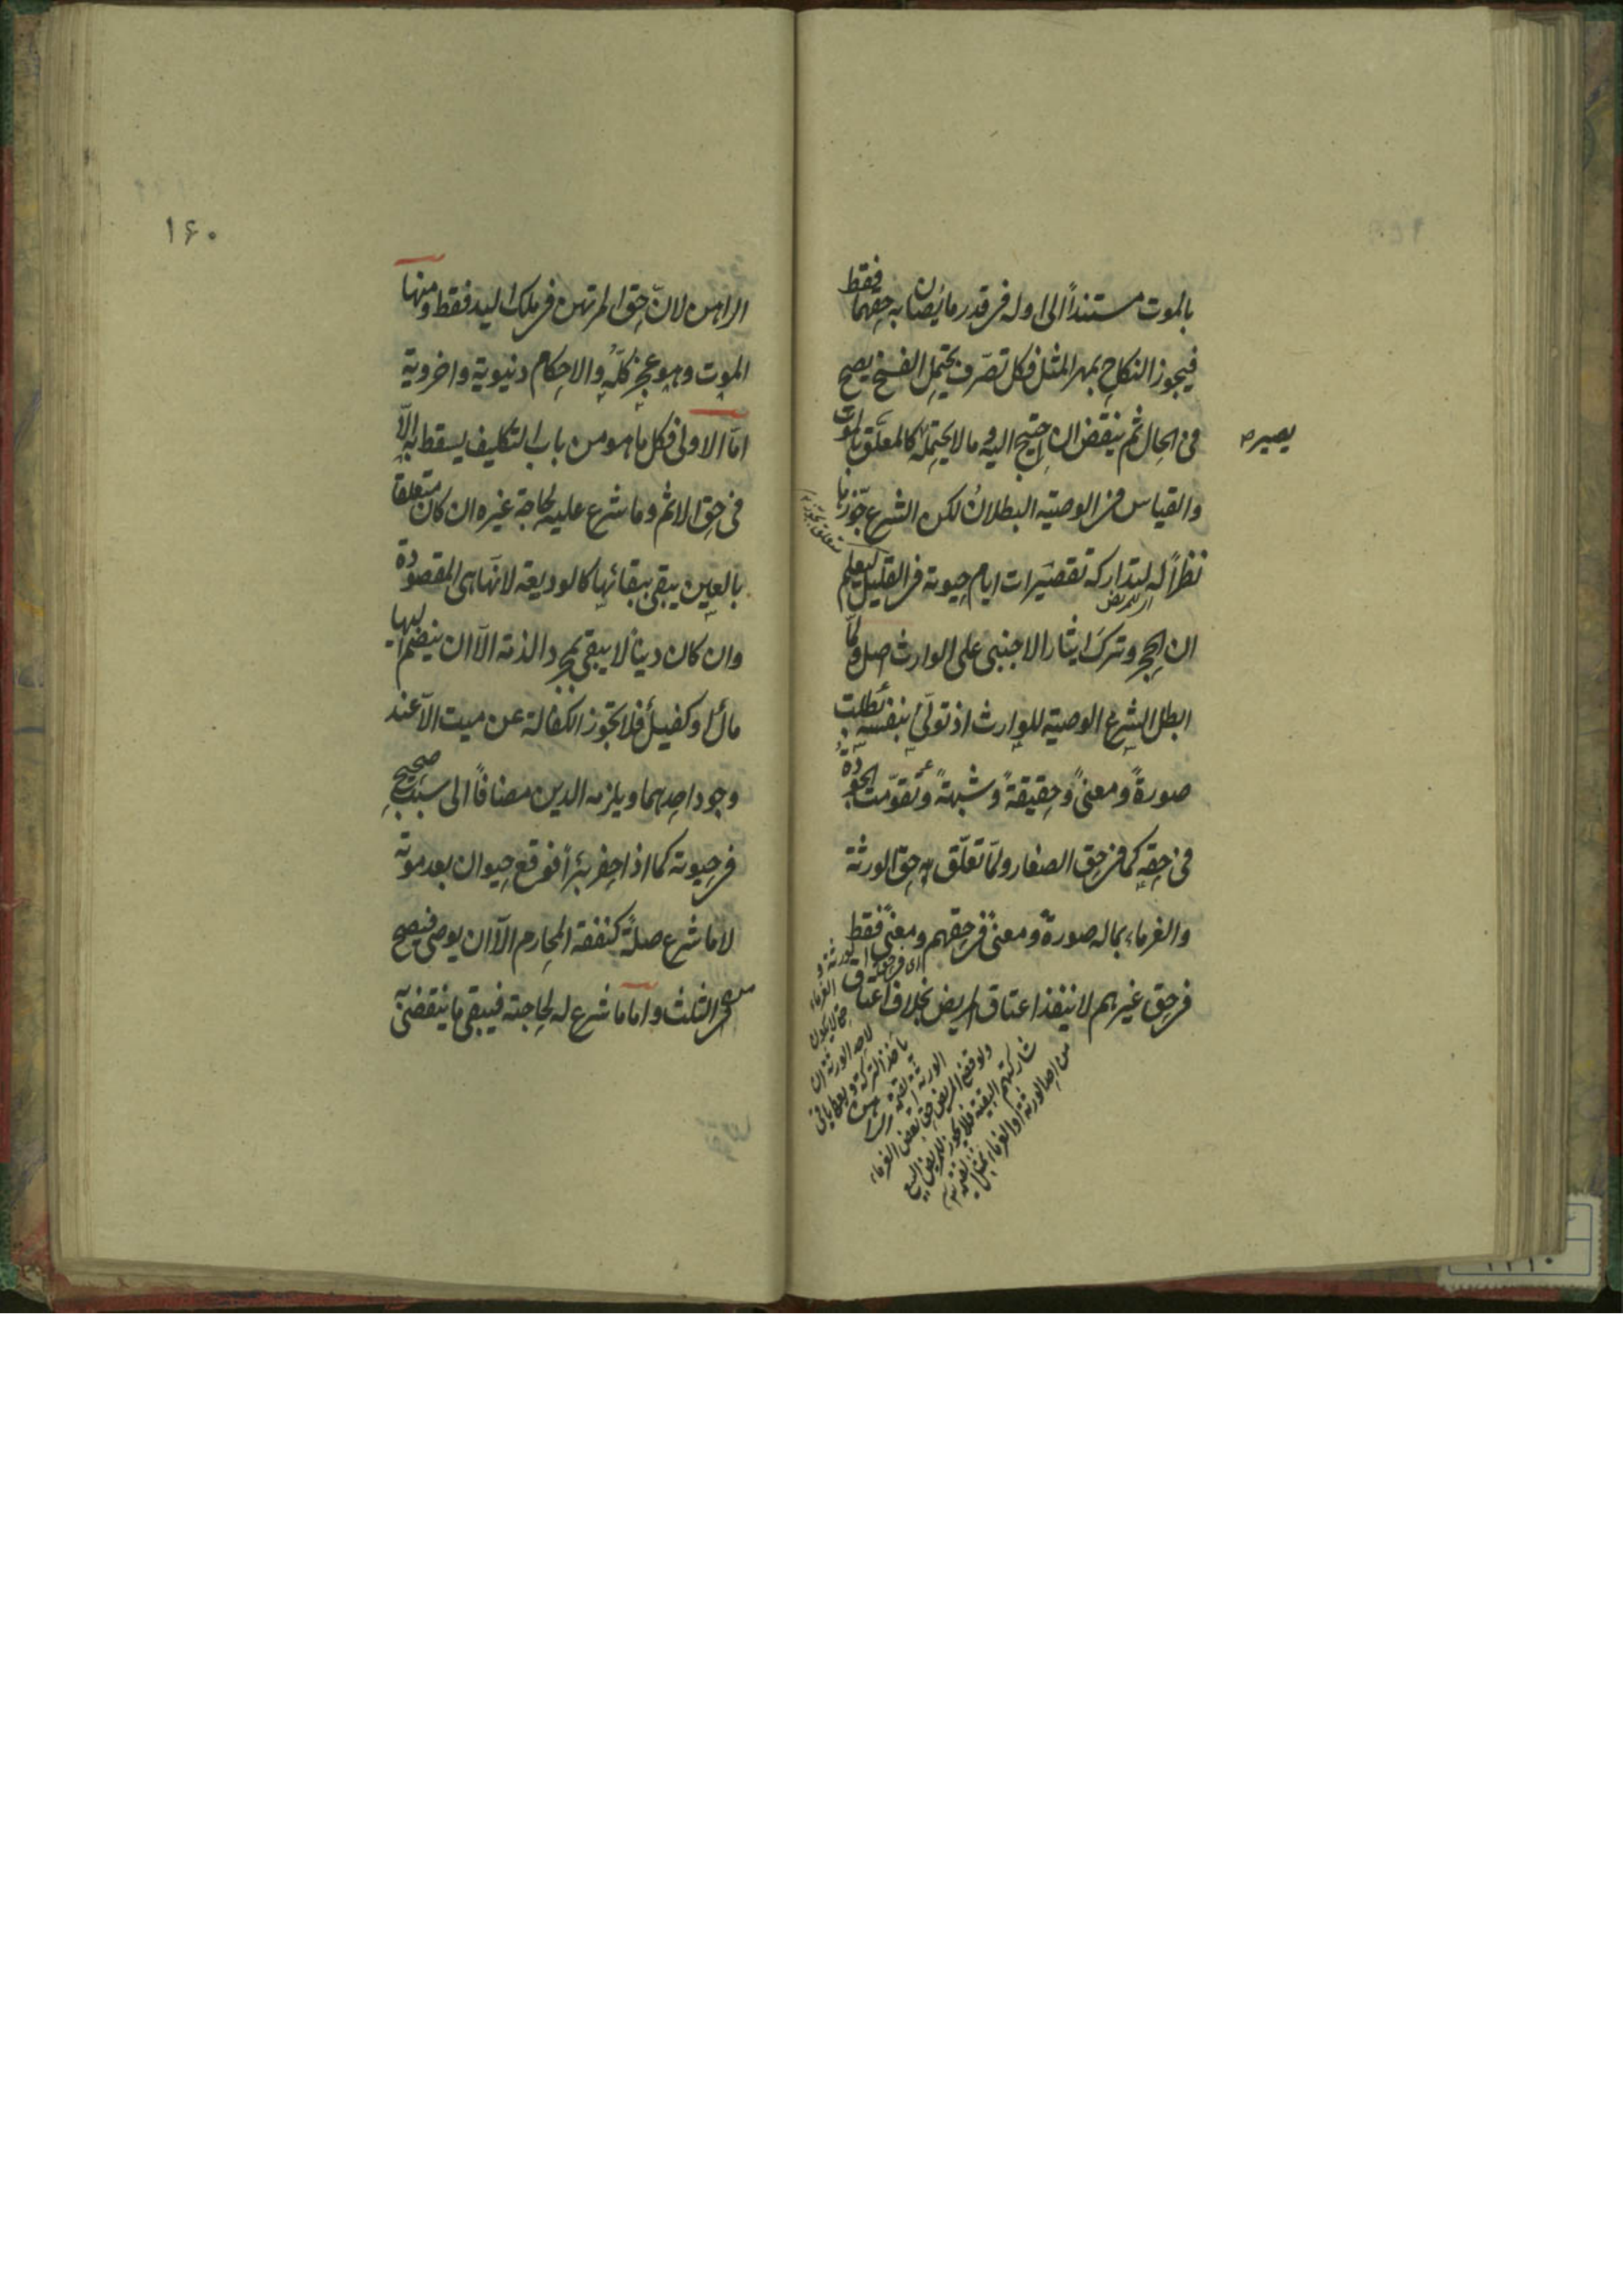 بالموت مستنداً الى اوله فى قدر ما يصان به حقهما فقط
فيجوز النكاح بمهر المثل فكل تصرّف يحتمل الفسخ يصح
فى الحال ثم ينقض ان احتيج اليه و ما لا يحتمله كالمعلّق بالموت
يصير
والقياس فى الوصية البطلان لكن الشرع جوّزها
متعلق بجوّز
نظراً له ليتدارك تقصيرات ايام حيوته فى القليل ليعلم
اى للمريض
ان الحجر وترك ايثار الاجنبى على الوارث اصل ولمّا
ابطل الشرع الوصية للوارث اذ تولّى بنفسه بطلت
صورةً ومعنىً وحقيقةً وشبهةً و تقوّمت الجودة
فى حقه كما فى حق الصغار ولمّا تعلّق حق الورثة
والغرماء بماله صورةً ومعنىً فى حقهم ومعنىً فقط
فى حق غيرهم لا ينفذ اعتاق المريض بخلاف اعتاق
اى فى حق الورثة و
الغرماء
حتى لا يكون
لاحد الورثة ان
يأخذ التركة ويعطى باقى
الورثة القيمة
ولو قضى المريض حق بعض الغرماء
شاركتهم البقية فلا يجوز للمريض البيع
من احد الورثة او الغرماء بمثل القيمة
١٦٠
الراهن لانّ حق المرتهن فى ملك اليد فقط ومنها
الموت وهو عجز كلّه والاحكام دنيوية واخروية
امّا الاولى فكل ما هو من باب التكليف يسقط به الّا
فى حق الاثم وما شرع عليه لحاجة غيره ان كان متعلقا
بالعين يبقى ببقائها كالوديعة لانها هى المقصودة
وان كان دينا لا يبقى بمجرد الذمة الّا ان ينضم اليها
مال او كفيل فلا يجوز الكفالة عن ميت الّا عند
وجود احدهما ويلزمه الدين مضافاً الى سبب صحيح
فى حيوته كما اذا حفر بئراً فوقع حيوان بعد موته
لا ما شرع صلةً كنفقة المحارم الّا ان يوصى فيصح
من الثلث و اما ما شرع له لحاجته فيبقى ما ينقضى به